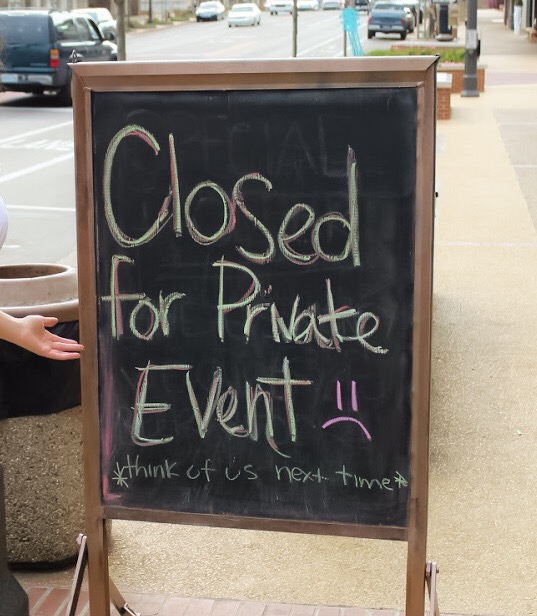 Closed
for Private
Event
*think of us next time*